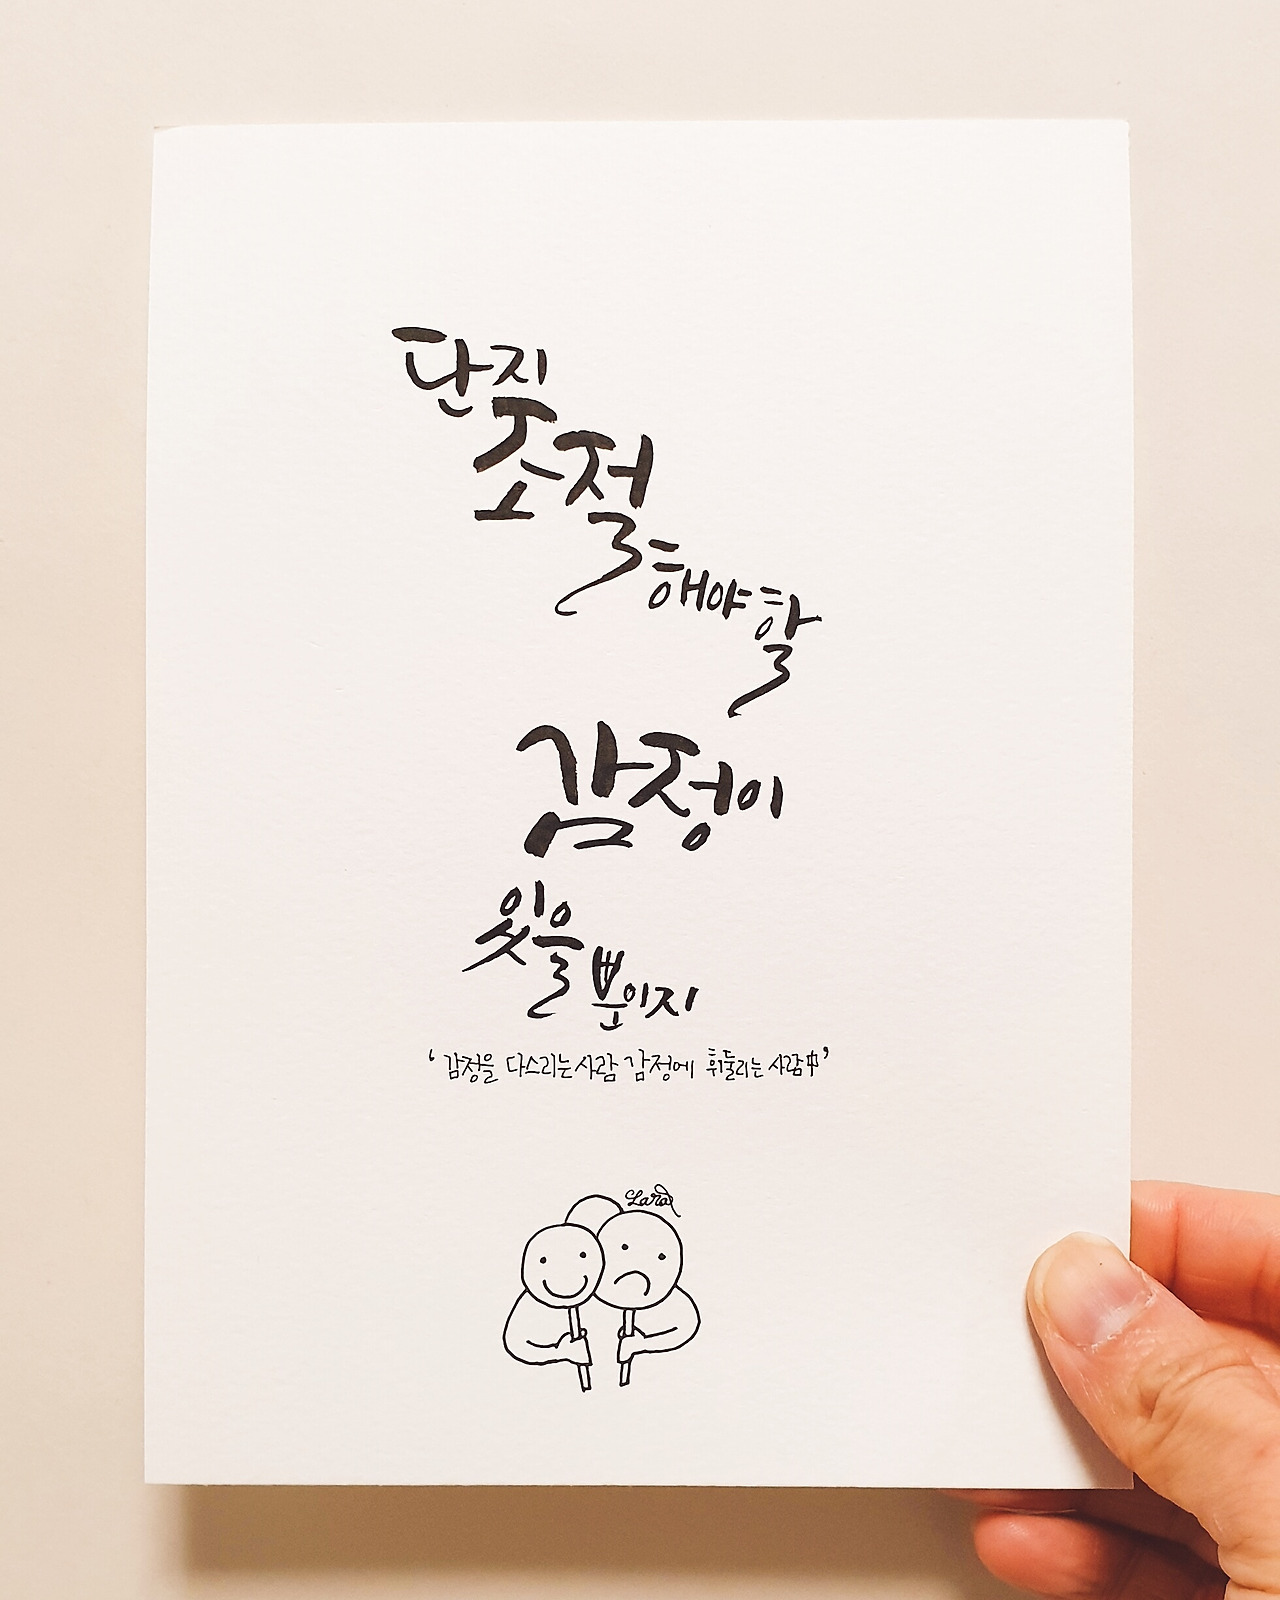 단지
조절
해야 할
감정이
있을
뿐이지
'감정을 다스리는 사람 감정에 휘둘리는 사람 中'
Lara